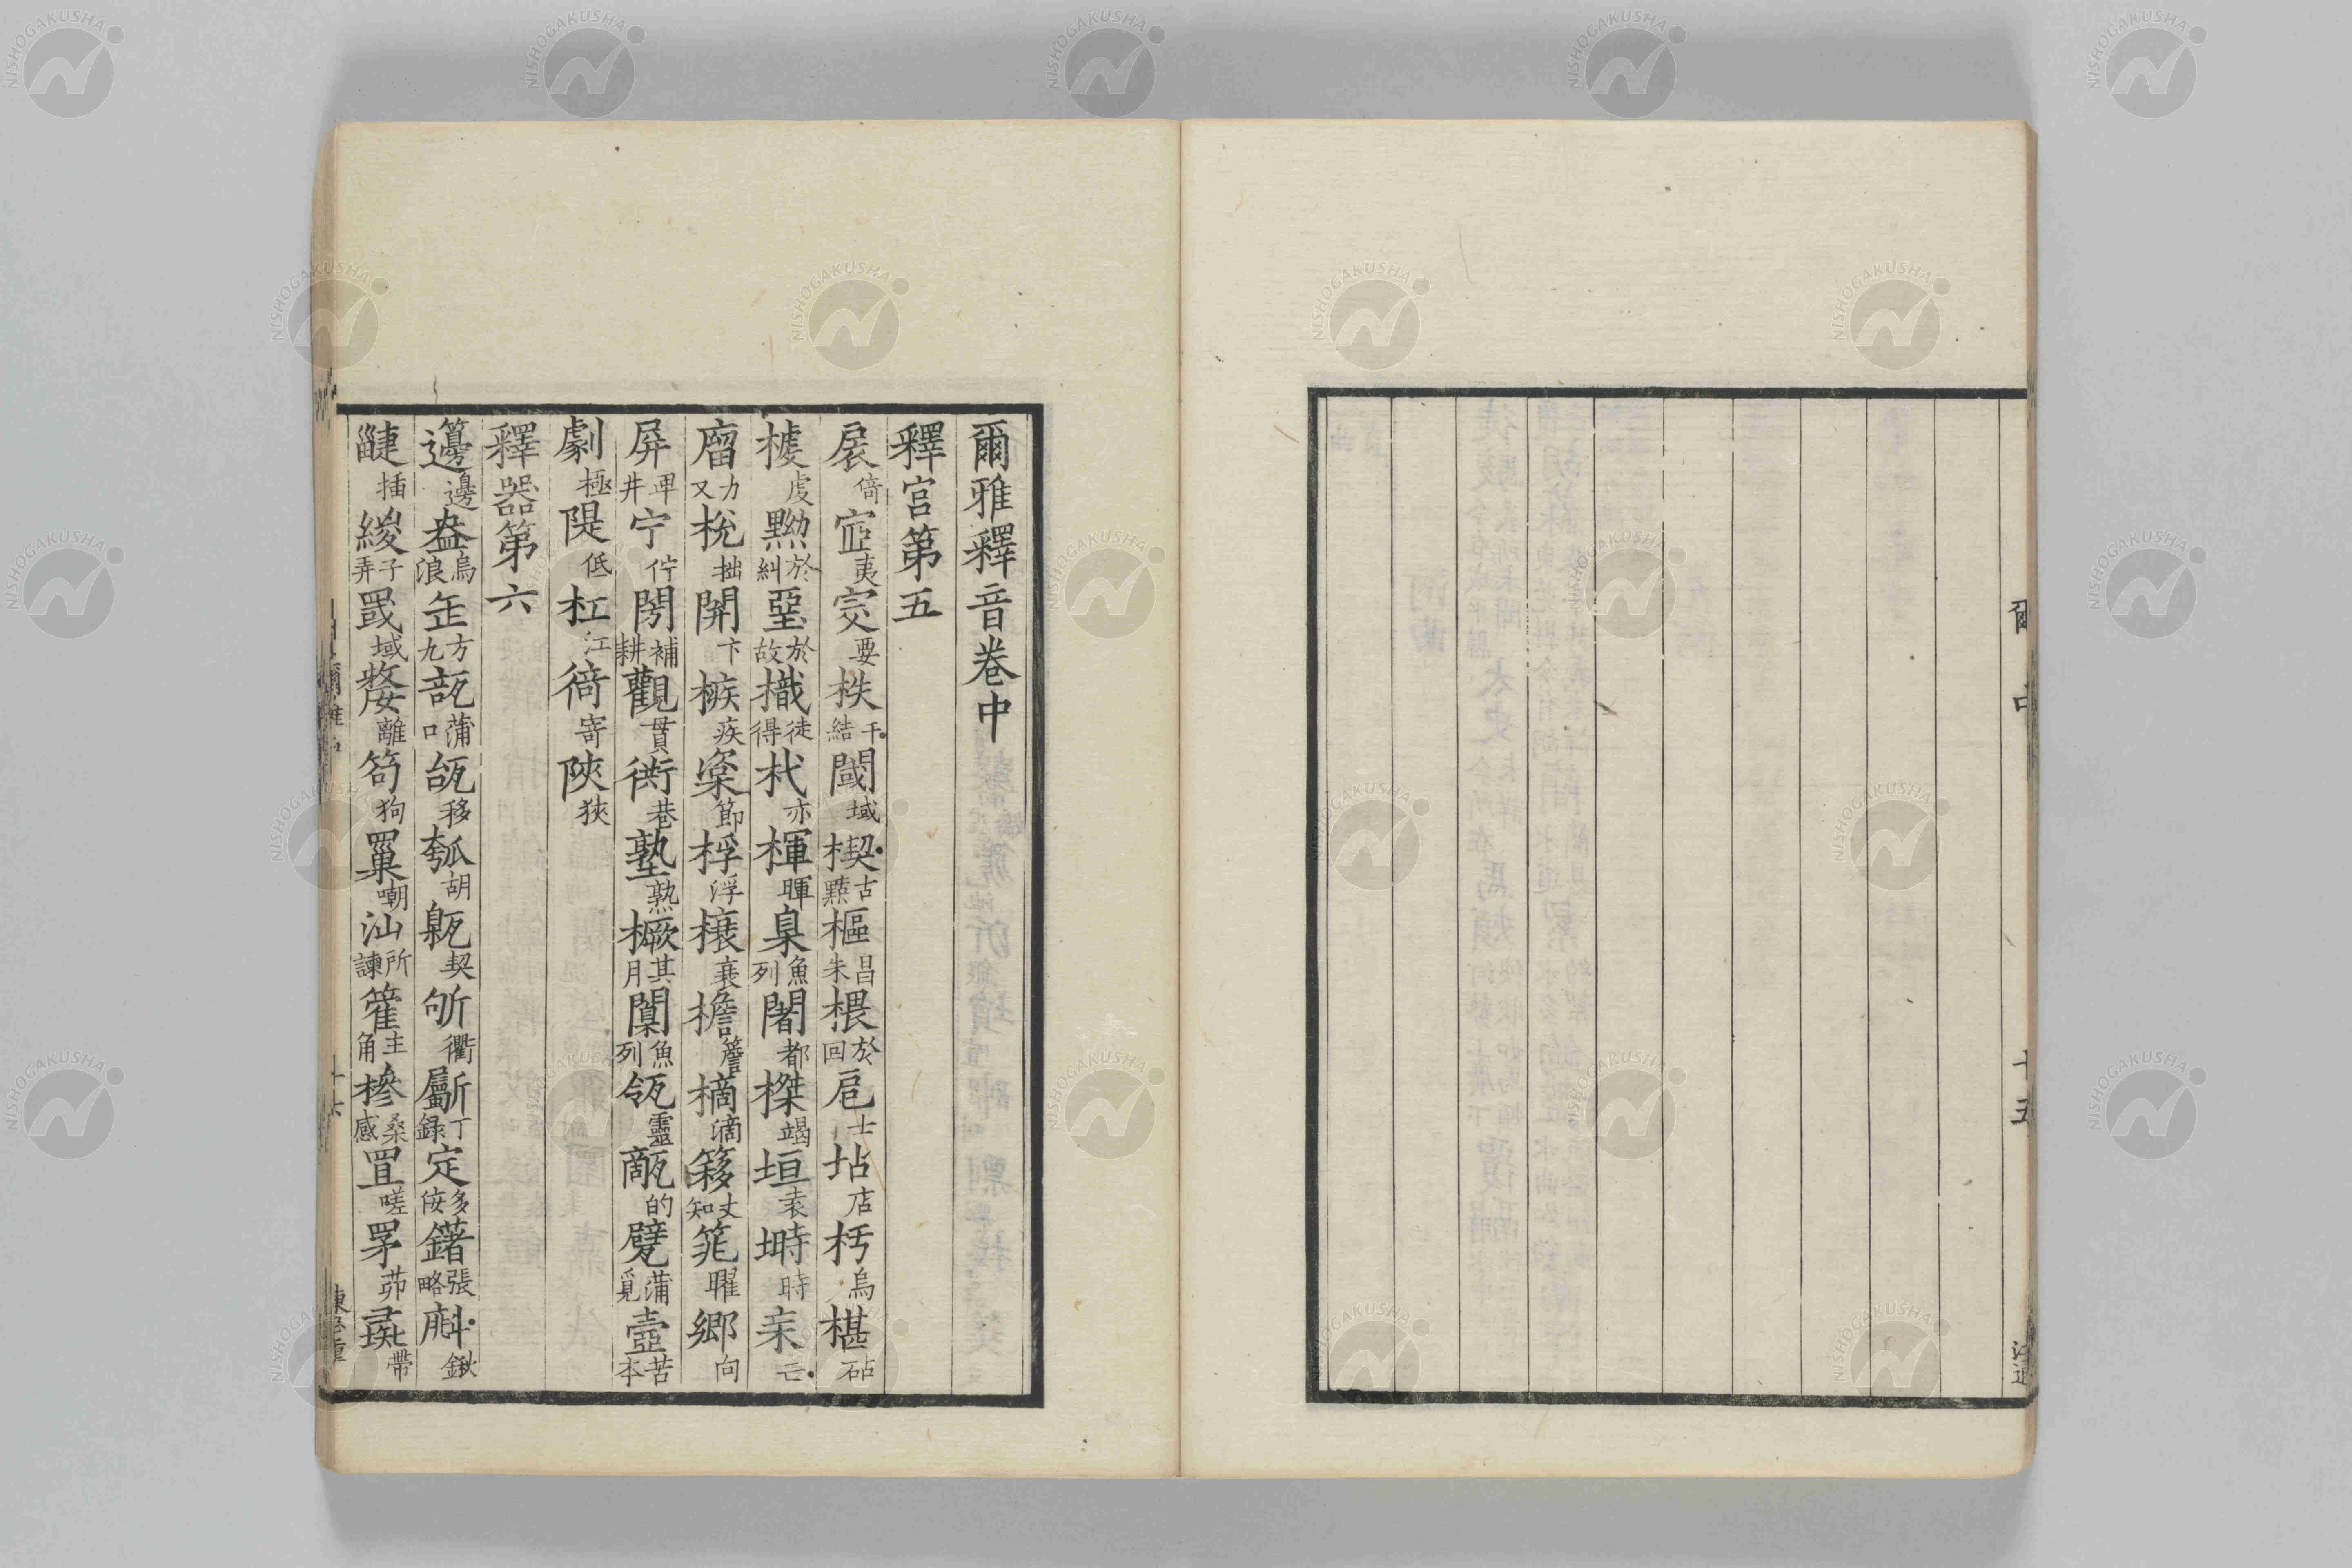 爾雅釋音卷中
釋宮第五
扆倚宧夷宎要柣千結閾域楔古黠樞昌朱椳於回戹士坫店杇烏椹砧
榩虔黝於糾堊於故樴徒得杙亦楎暉臬魚列闍都榤竭垣袁塒時杗亡
廇力又梲拙開卞槉疾楶節桴浮榱衰檐簷樀滴簃丈知筄曜鄉向
屏卑井宁佇閍補耕觀貫衖巷塾熟橛其月闑魚列瓴靈甋的甓蒲覓壼苦本
劇極隄低杠江徛寄陜狹
釋器第六
籩邊盎烏浪缶方九瓿蒲口瓵移瓠胡甈契斪衢斸丁錄定多佞鐯張略𣂁鍬
疀插緵子弄罭域嫠離笱狗罺嘲汕所諫篧主角槮桑感罝嗟罞茆彘帶
爾中
十五
爾雅中
十六